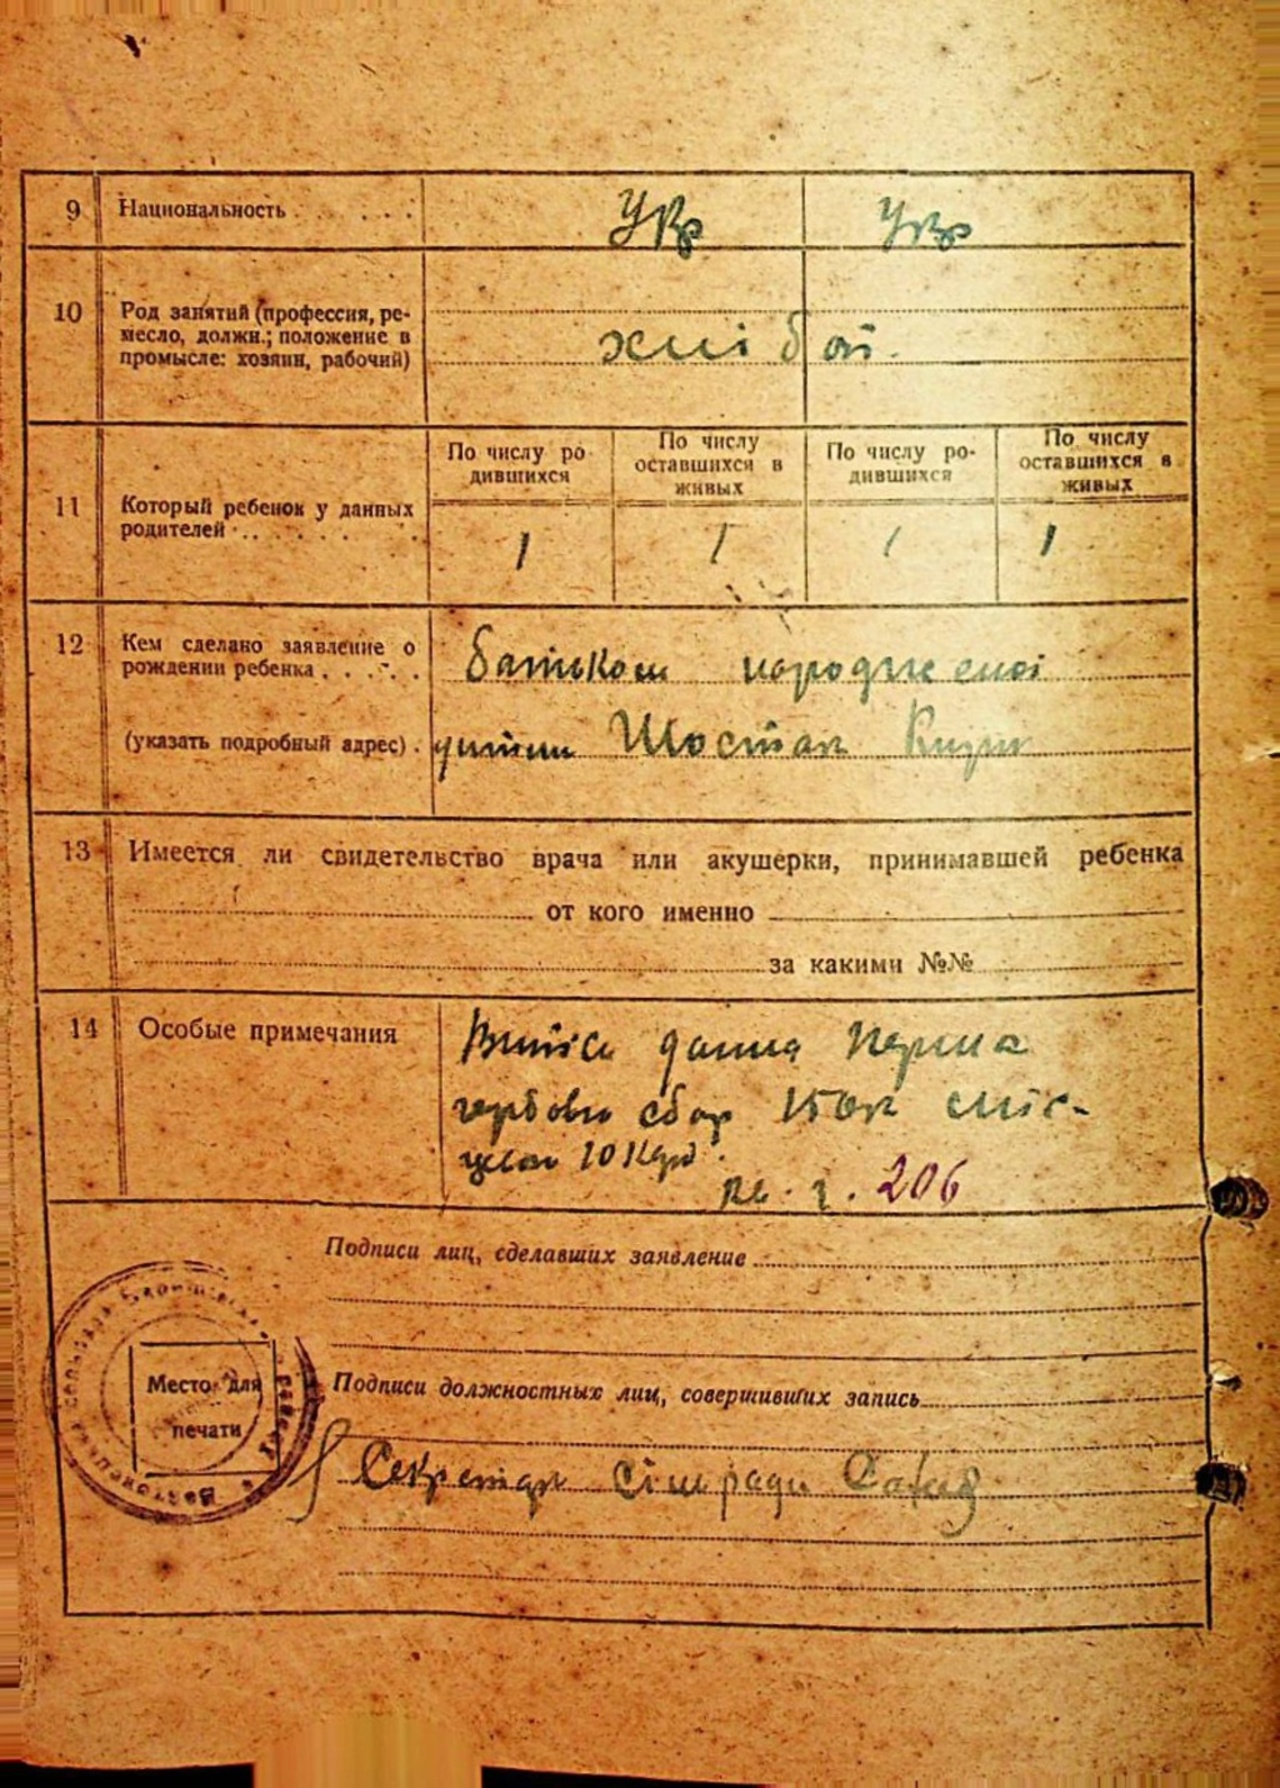 9 Национальность . . . . . Укр Укр
10 Род занятий (профессия, ре-
месло, должн.; положение в
промысле: хозяин, рабочий)
хлібоп.
По числу ро
дившихся
По числу
оставшихся в
живых
По числу ро-
дившихся
По числу
оставшихся в
живых
11 Который ребенок у данных
родителей . . . . . . .
1 1 1 1
12 Кем сделано заявление о
рождении ребенка . . . . .
Батьком народженої
(указать подробный адрес) . дитини Шостак
13 Имеется ли свидетельство врача или акушерки, принимавшей ребенка
от кого именно
за какими №№
14 Особые примечания
Витісь дана перша
сбор 15 міс-
10
206
Подписи лиц, сделавших заявление
Подписи должностных лиц, совершивших запись
Место для
печати
Секретар сільради